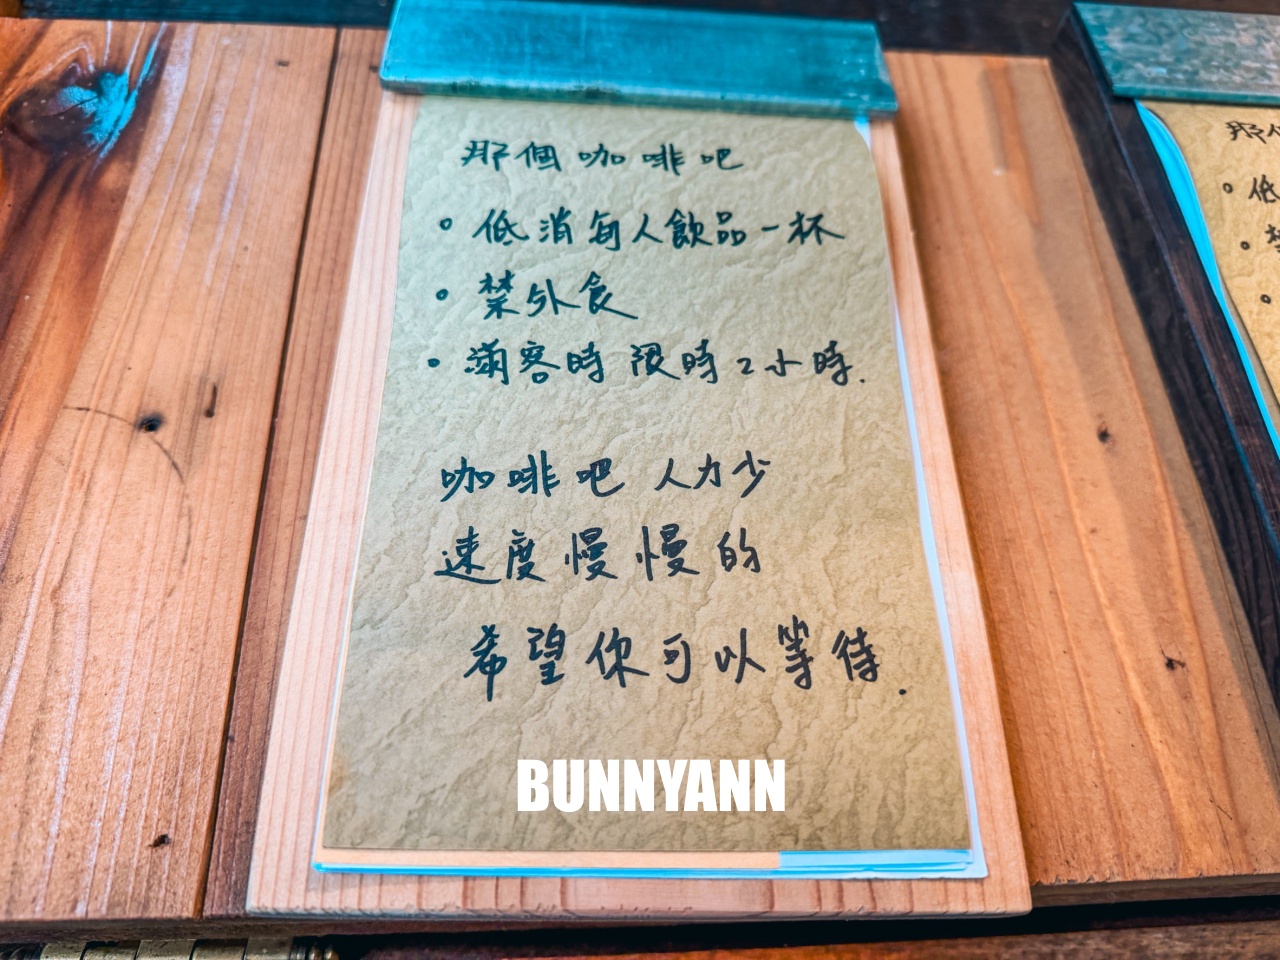 那個咖啡吧
• 低消每人飲品一杯
• 禁外食
• 滿客時 限時2小時.
咖啡吧 人力少
速度慢慢的
希望你可以等待.
BUNNYANN
那
• 低
• 禁
•